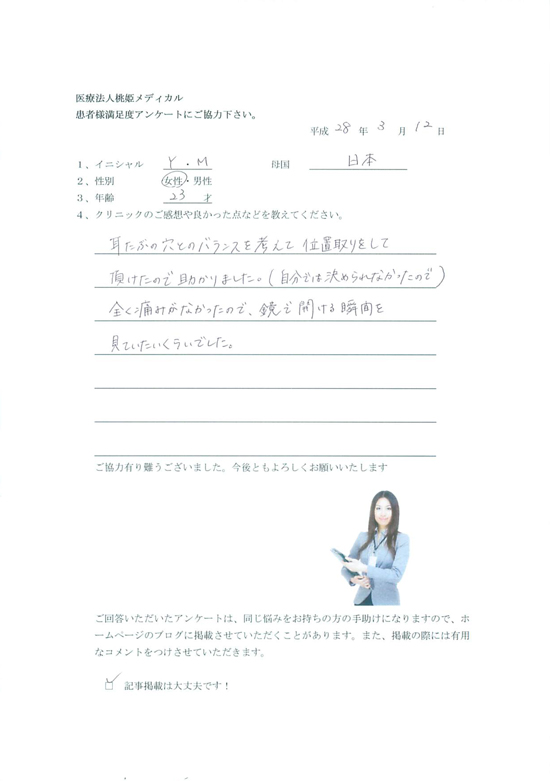 医療法人桃姫メディカル
患者様満足度アンケートにご協力下さい。
平成 28 年 3 月 12 日
1、イニシャル Y.M 母国 日本
2、性別 女性・男性
3、年齢 23 才
4、クリニックのご感想や良かった点などを教えてください。
耳たぶの穴とのバランスを考えて位置取りをして
頂けたので助かりました。(自分では決められなかったので)
全く痛みがなかったので、鏡で開ける瞬間を
見ていたいくらいでした。
ご協力有り難うございました。今後ともよろしくお願いいたします
ご回答いただいたアンケートは、同じ悩みをお持ちの方の手助けになりますので、ホ
ームページのブログに掲載させていただくことがあります。また、掲載の際には有用
なコメントをつけさせていただきます。
記事掲載は大丈夫です！